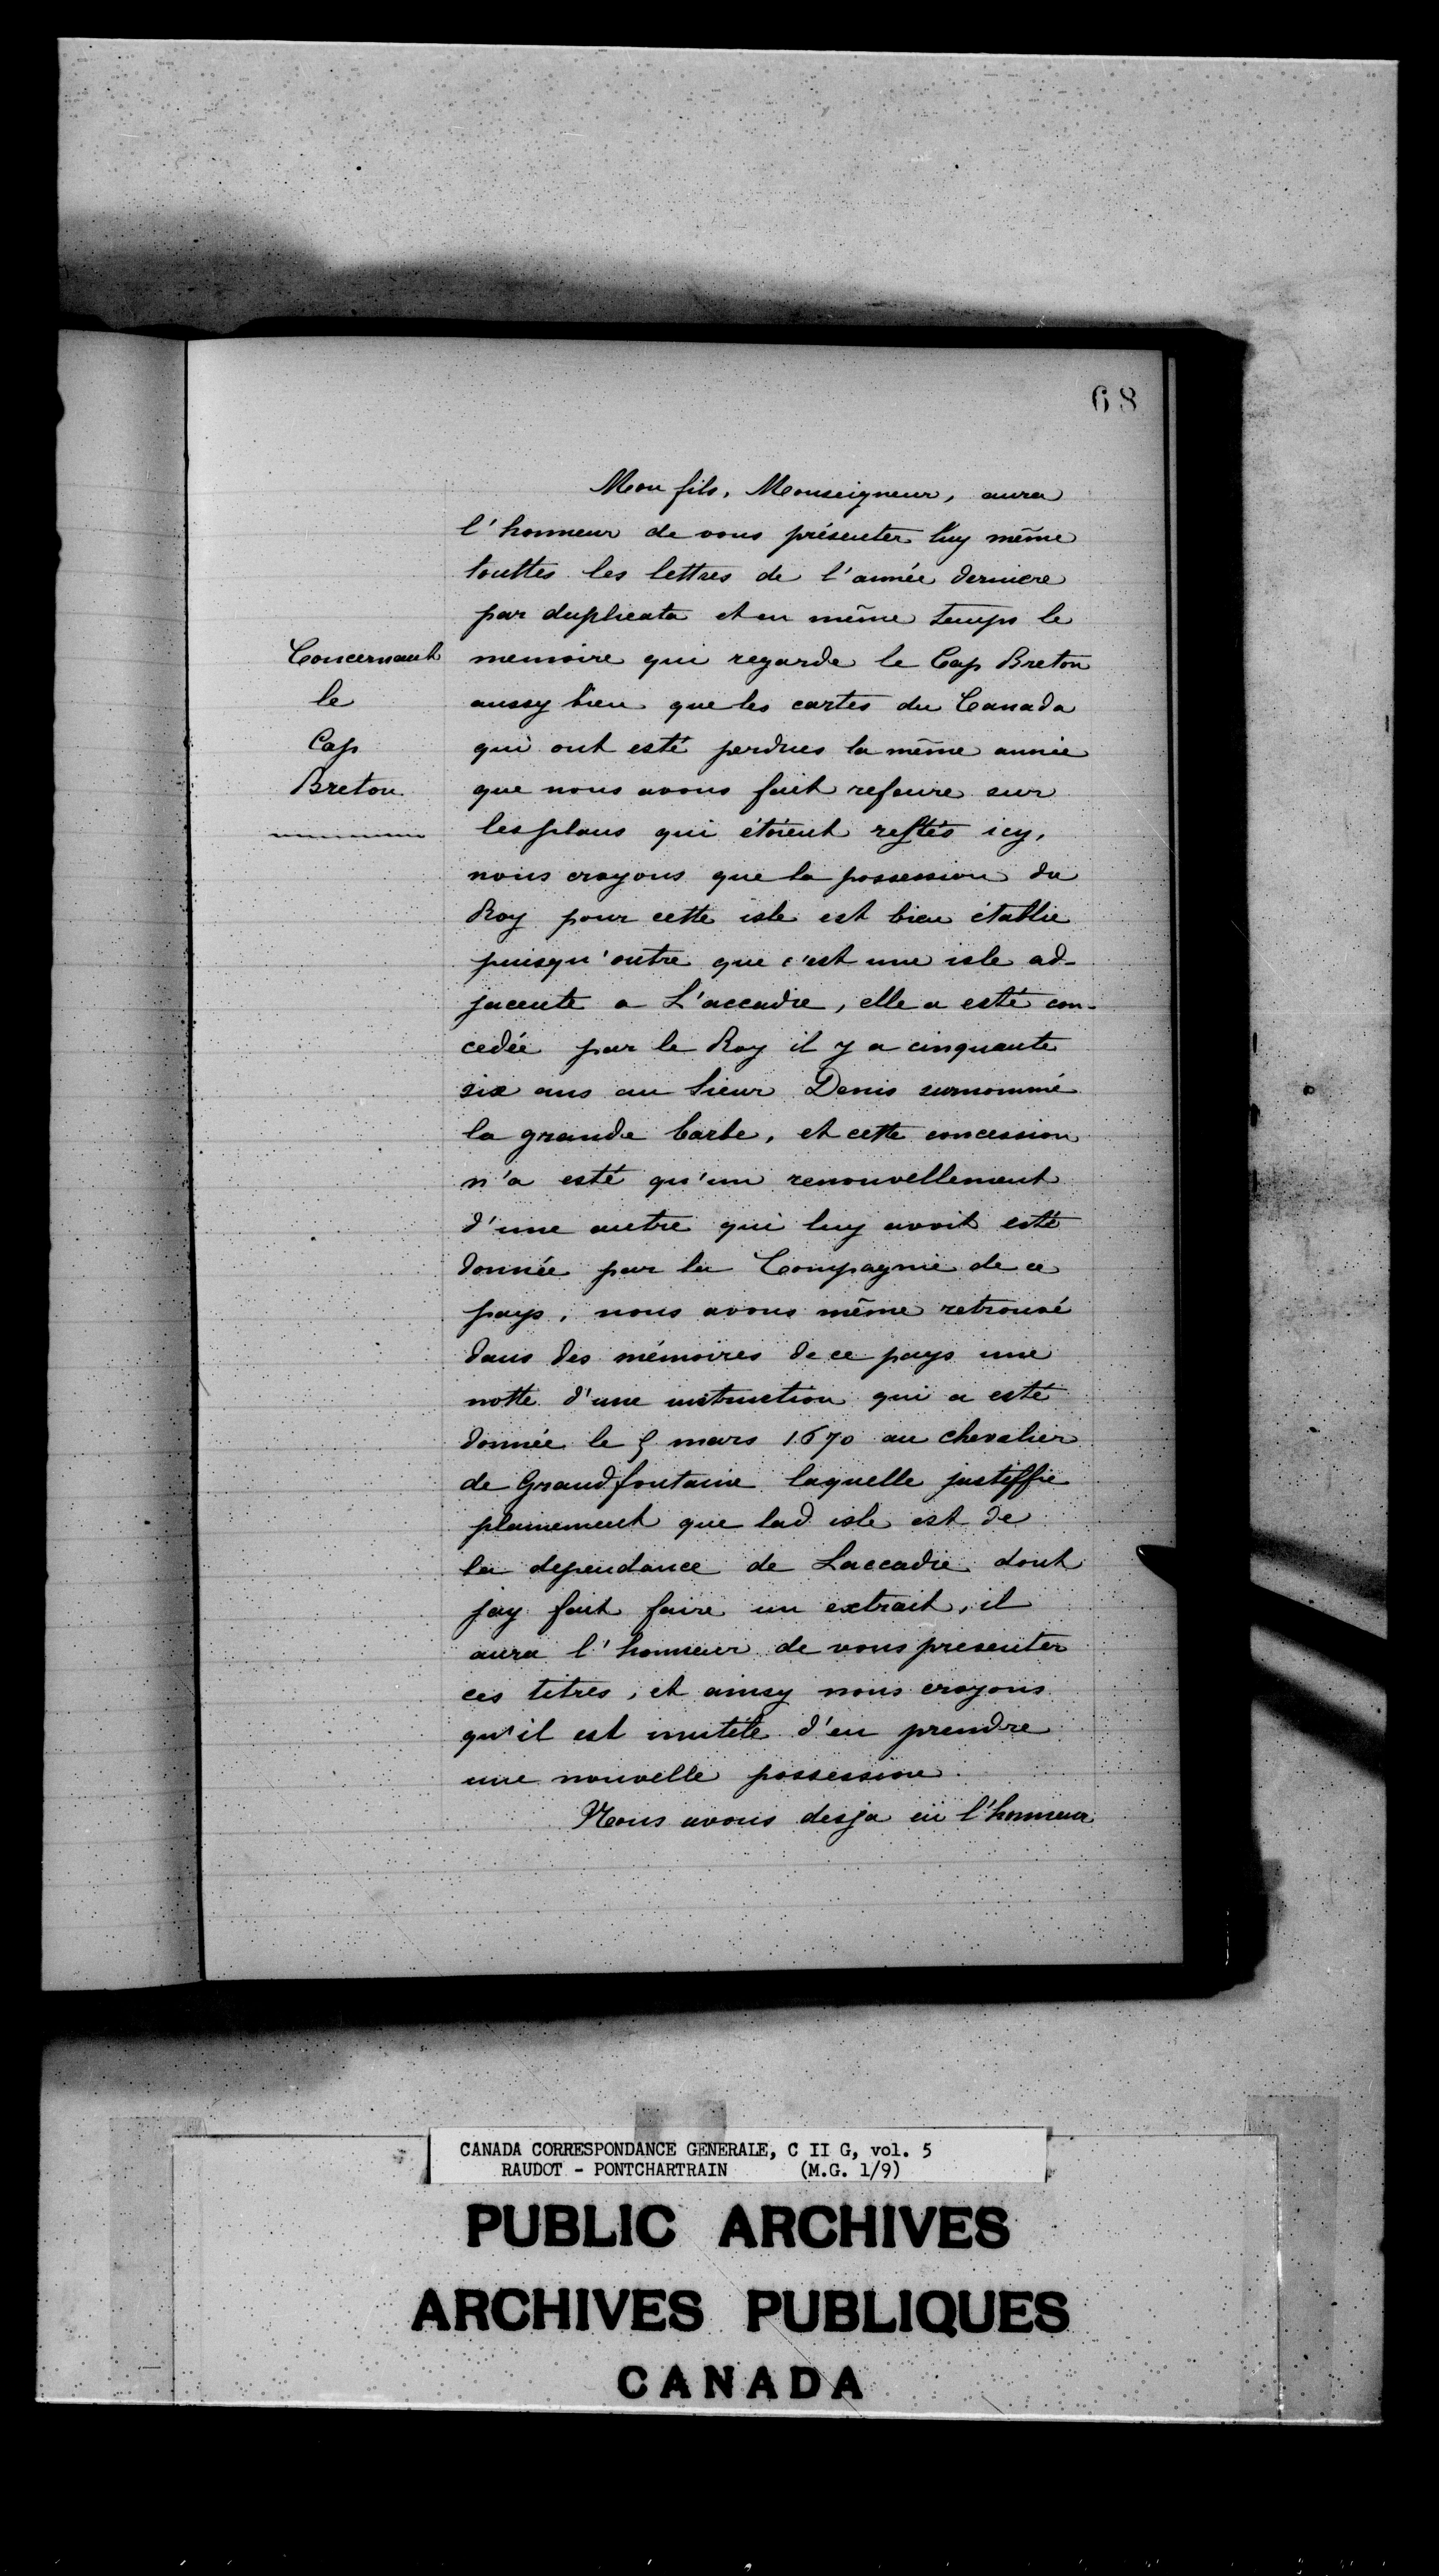 68
Mon fils, Monseigneur, aura
l'honneur de vous présenter luy même
touttes les lettres de l'année derniere
par duplicata et en même temps le
Concernant
le
Cap
Breton
memoire qui regarde le Cap Breton
aussy bien que les cartes du Canada
qui ont esté perdues la même année
que nous avons fait refaire sur
les plans qui étoient restés icy,
nous croyons que la possession du
Roy pour cette isle est bien établie
puisqu'outre que c'est une isle ad-
jacente a L'accadie, elle a esté con-
cedée par le Roy il y a cinquante
six ans au Sieur Denis surnommé
la grande barbe, et cette concession
n'a esté qu'un renouvellement
d'une autre qui luy avoit esté
donnée par la Compagnie de ce
pays, nous avons même retrouvé
dans des mémoires de ce pays une
notte d'une instruction qui a esté
donnée le 5 mars 1670 au chevalier
de Grandfontaine laquelle justiffie
plainement que lad isle est de
la dependance de Laccadie dont
jay fait faire un extrait, il
aura l'honneur de vous presenter
ces titres, et ainsy nous croyons
qu'il est inutile d'en prendre
une nouvelle possession.
Nous avons desja eü l'honneur
CANADA CORRESPONDANCE GENERALE, C II G, vol. 5
RAUDOT - PONTCHARTRAIN (M.G. 1/9)
PUBLIC ARCHIVES
ARCHIVES PUBLIQUES
CANADA